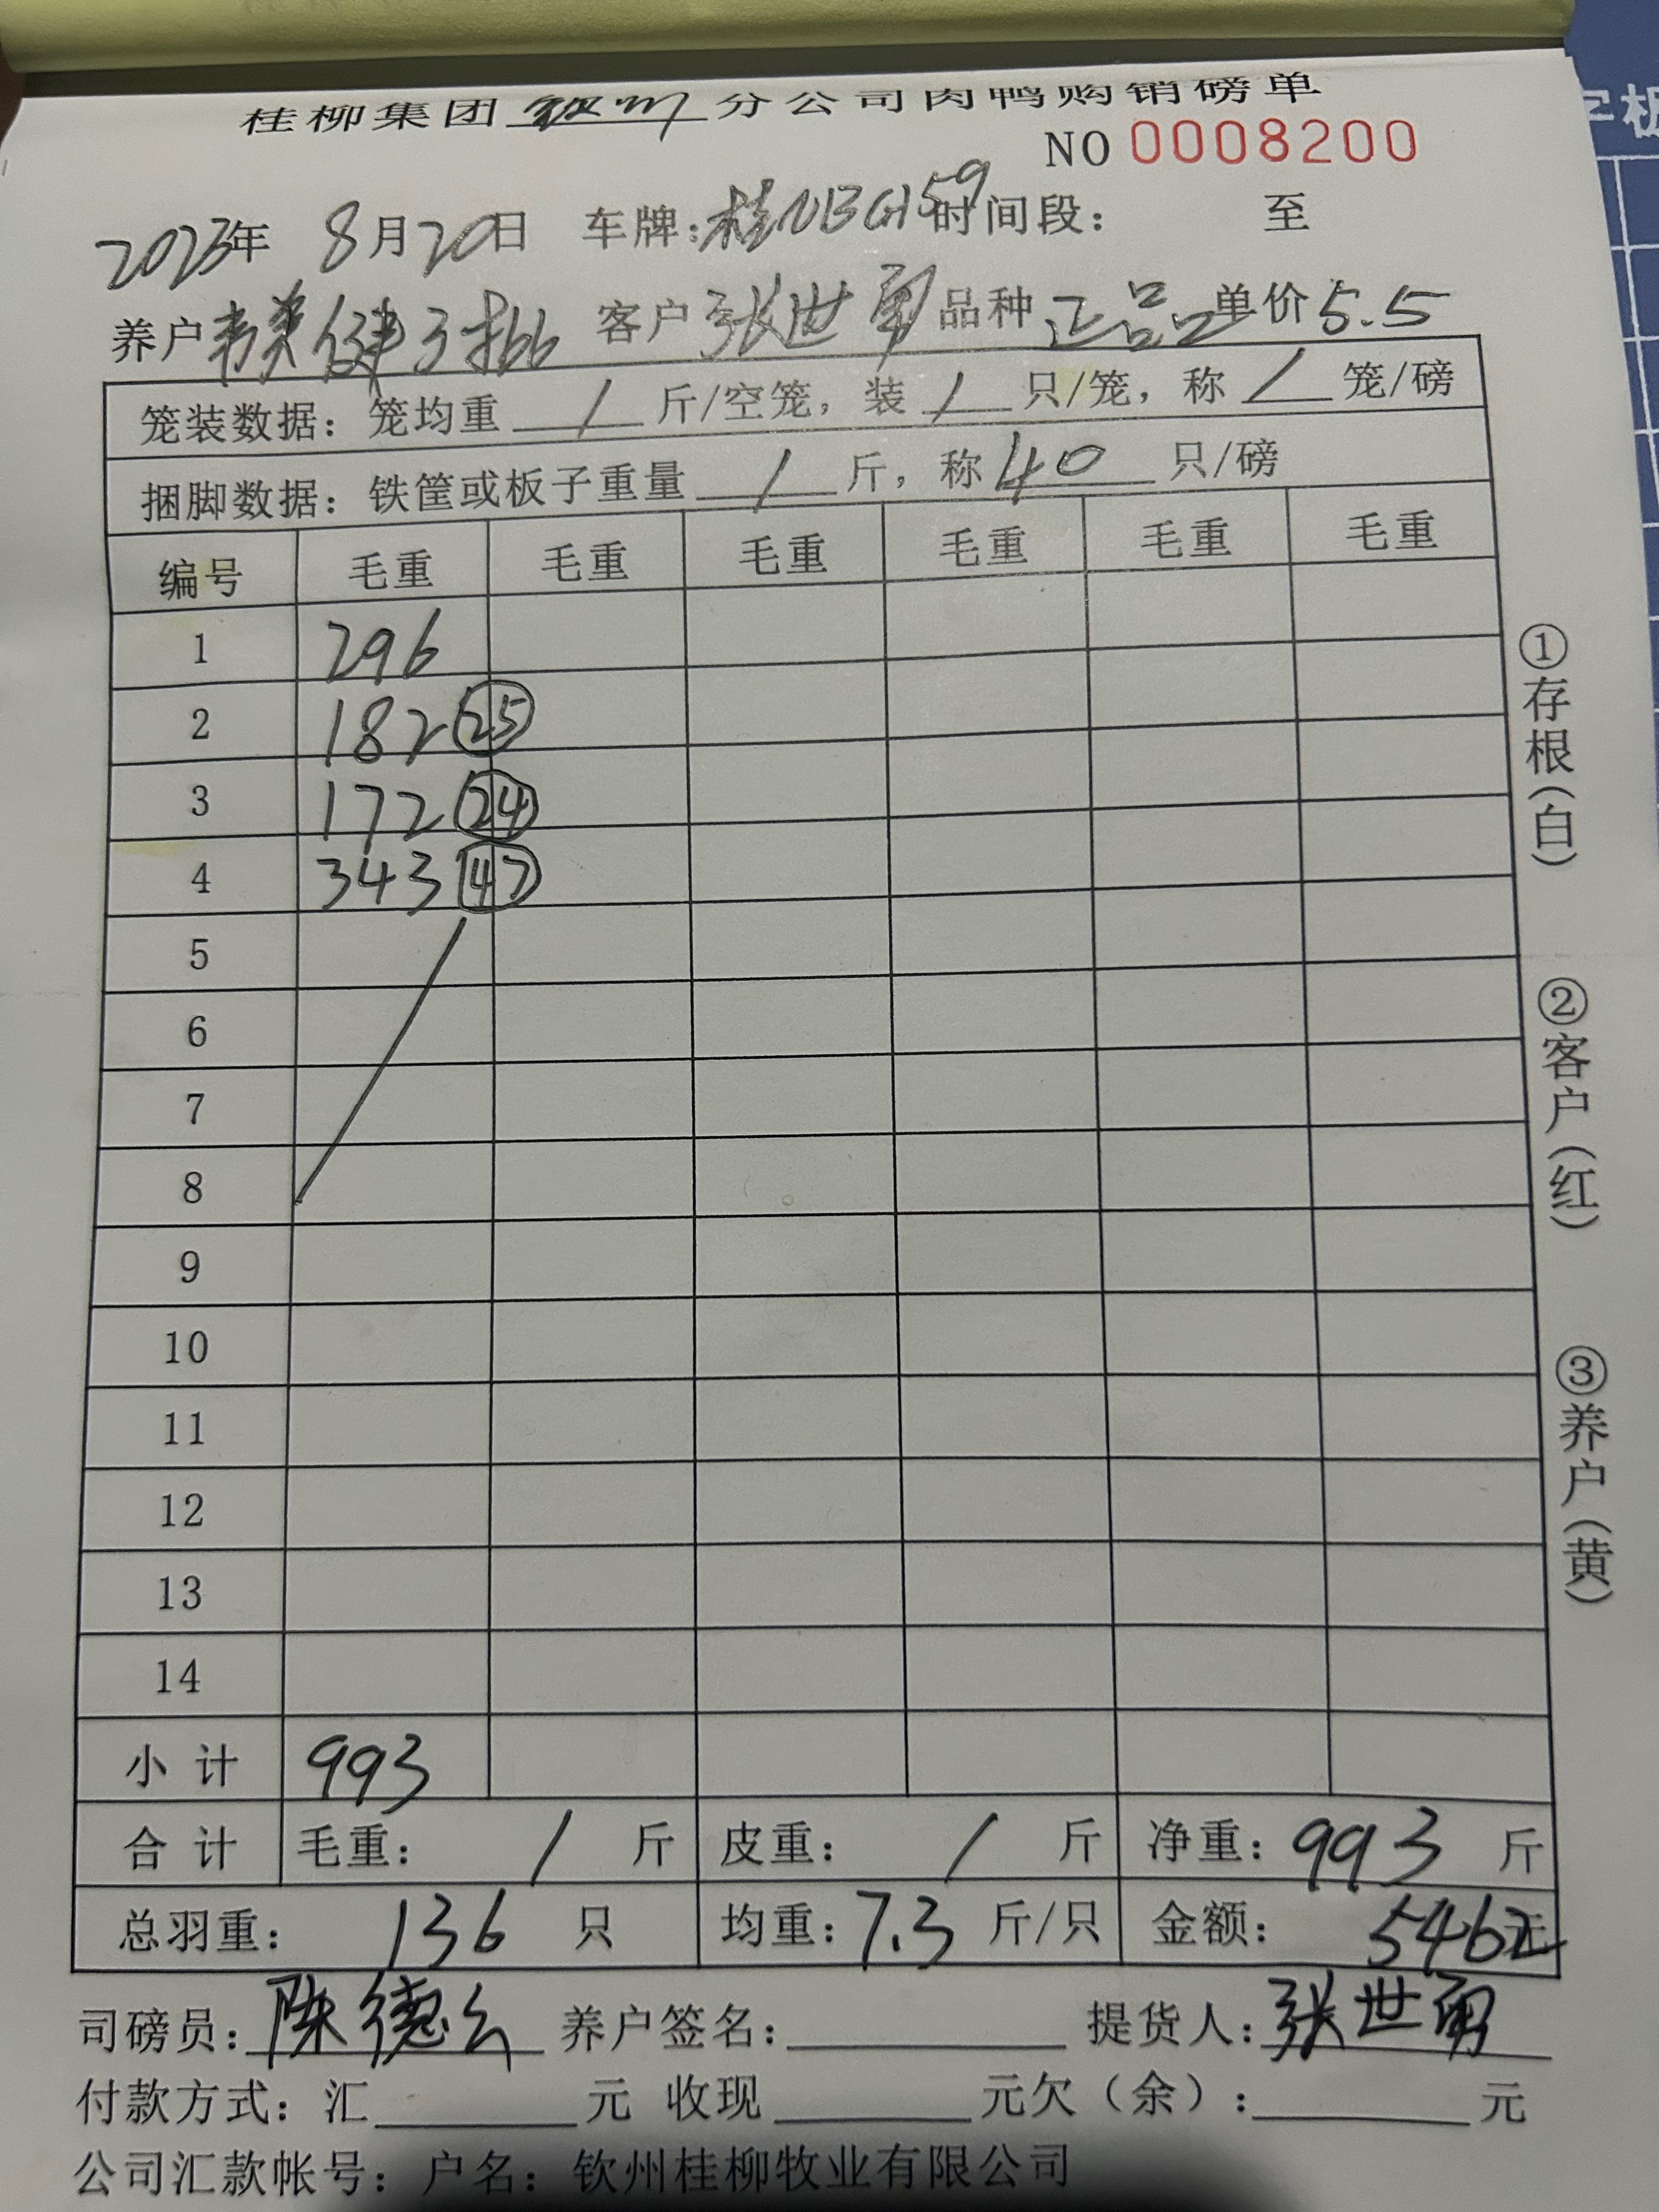 桂柳集团钦州分公司肉鸭购销磅单
NO 0008200
2023年 8月20日 车牌:桂NBG159时间段: 至
养户 健3批 客户张世勇品种正品单价5.5
笼装数据:笼均重 / 斤/空笼,装 / 只/笼,称 / 笼/磅
捆脚数据:铁筐或板子重量 / 斤,称40 只/磅
编号 毛重 毛重 毛重 毛重 毛重 毛重
1 296
2 182 25
3 172 24
4 343 47
5
6
7
8
9
10
11
12
13
14
小计 993
合计 毛重: / 斤 皮重: / 斤 净重:993 斤
总羽重: 136 只 均重:7.3 斤/只 金额: 5462元
司磅员:陈德 养户签名: 提货人:张世勇
付款方式:汇 元 收现 元欠(余): 元
公司汇款帐号:户名:钦州桂柳牧业有限公司
①存根(白)
②客户(红)
③养户(黄)
字板